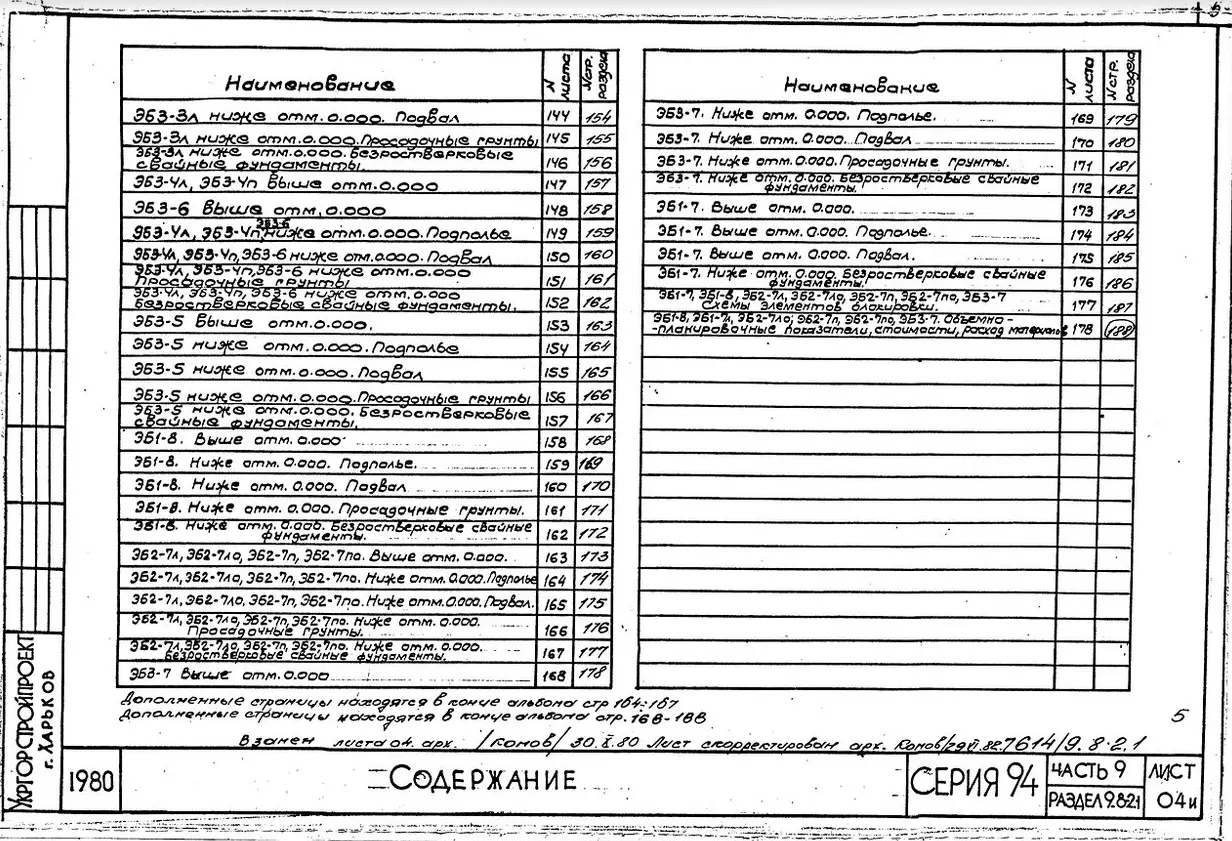 5
Наименование N листа Nстр. раздела
ЭБ3-3л ниже отм. 0.000. Подвал 144 154
ЭБ3-3л ниже отм. 0.000. Просадочные грунты 145 155
ЭБ3-3л ниже отм. 0.000. Безростверковые
свайные фундаменты. 146 156
ЭБ3-4л, ЭБ3-4п Выше отм. 0.000 147 157
ЭБ3-6 Выше отм. 0.000 148 158
ЭБ3-6
ЭБ3-4л, ЭБ3-4п, ниже отм. 0.000. Подполье 149 159
ЭБ3-4л, ЭБ3-4п, ЭБ3-6 ниже отм. 0.000. Подвал 150 160
ЭБ3-4л, ЭБ3-4п, ЭБ3-6 ниже отм. 0.000
Просадочные грунты 151 161
ЭБ3-4л, ЭБ3-4п, ЭБ3-6 ниже отм. 0.000
Безростверковые свайные фундаменты. 152 162
ЭБ3-5 Выше отм. 0.000. 153 163
ЭБ3-5 ниже отм. 0.000. Подполье 154 164
ЭБ3-5 ниже отм. 0.000. Подвал 155 165
ЭБ3-5 ниже отм. 0.000. Просадочные грунты 156 166
ЭБ3-5 ниже отм. 0.000. Безростверковые
свайные фундаменты. 157 167
ЭБ1-8. Выше отм. 0.000 158 168
ЭБ1-8. Ниже отм. 0.000. Подполье. 159 169
ЭБ1-8. Ниже отм. 0.000. Подвал 160 170
ЭБ1-8. Ниже отм. 0.000. Просадочные грунты. 161 171
ЭБ1-8. Ниже отм. 0.000. Безростверковые свайные
фундаменты. 162 172
ЭБ2-7л, ЭБ2-7ло, ЭБ2-7п, ЭБ2-7по. Выше отм. 0.000. 163 173
ЭБ2-7л, ЭБ2-7ло, ЭБ2-7п, ЭБ2-7по. Ниже отм. 0.000. Подполье 164 174
ЭБ2-7л, ЭБ2-7ло, ЭБ2-7п, ЭБ2-7по. Ниже отм. 0.000. Подвал. 165 175
ЭБ2-7л, ЭБ2-7ло, ЭБ2-7п, ЭБ2-7по. Ниже отм. 0.000.
Просадочные грунты. 166 176
ЭБ2-7л, ЭБ2-7ло, ЭБ2-7п, ЭБ2-7по. Ниже отм. 0.000.
Безростверковые свайные фундаменты. 167 177
ЭБ3-7 Выше отм. 0.000 168 178
Наименование N листа Nстр. раздела
ЭБ3-7. Ниже отм. 0.000. Подполье. 169 179
ЭБ3-7. Ниже отм. 0.000. Подвал 170 180
ЭБ3-7. Ниже отм. 0.000. Просадочные грунты. 171 181
ЭБ3-7. Ниже отм. 0.000. Безростверковые свайные
фундаменты. 172 182
ЭБ1-7. Выше отм. 0.000. 173 183
ЭБ1-7. Выше отм. 0.000. Подполье. 174 184
ЭБ1-7. Выше отм. 0.000. Подвал. 175 185
ЭБ1-7. Ниже отм. 0.000. Безростверковые свайные
фундаменты. 176 186
ЭБ1-7, ЭБ1-8, ЭБ2-7л, ЭБ2-7ло, ЭБ2-7п, ЭБ2-7по, ЭБ3-7
Схемы элементов блокировки. 177 187
ЭБ1-8, ЭБ1-7, ЭБ2-7ло, ЭБ2-7п, ЭБ2-7по, ЭБ3-7. Объемно-
-планировочные показатели, стоимости, расход материалов 178 (188)
Дополненные страницы находятся в конце альбома стр 164-167
Дополненные страницы находятся в конце альбома стр. 168-188
5
Взамен листа 04. арх. /Конов/ 30.X.80 Лист скорректирован арх. Конов/29.VI.82. 7614/9.8-2.1
УКРГОРСТРОЙПРОЕКТ
г. ХАРЬКОВ
1980
СОДЕРЖАНИЕ
СЕРИЯ 94
ЧАСТЬ 9
РАЗДЕЛ 9.8-2.1
ЛИСТ
04и